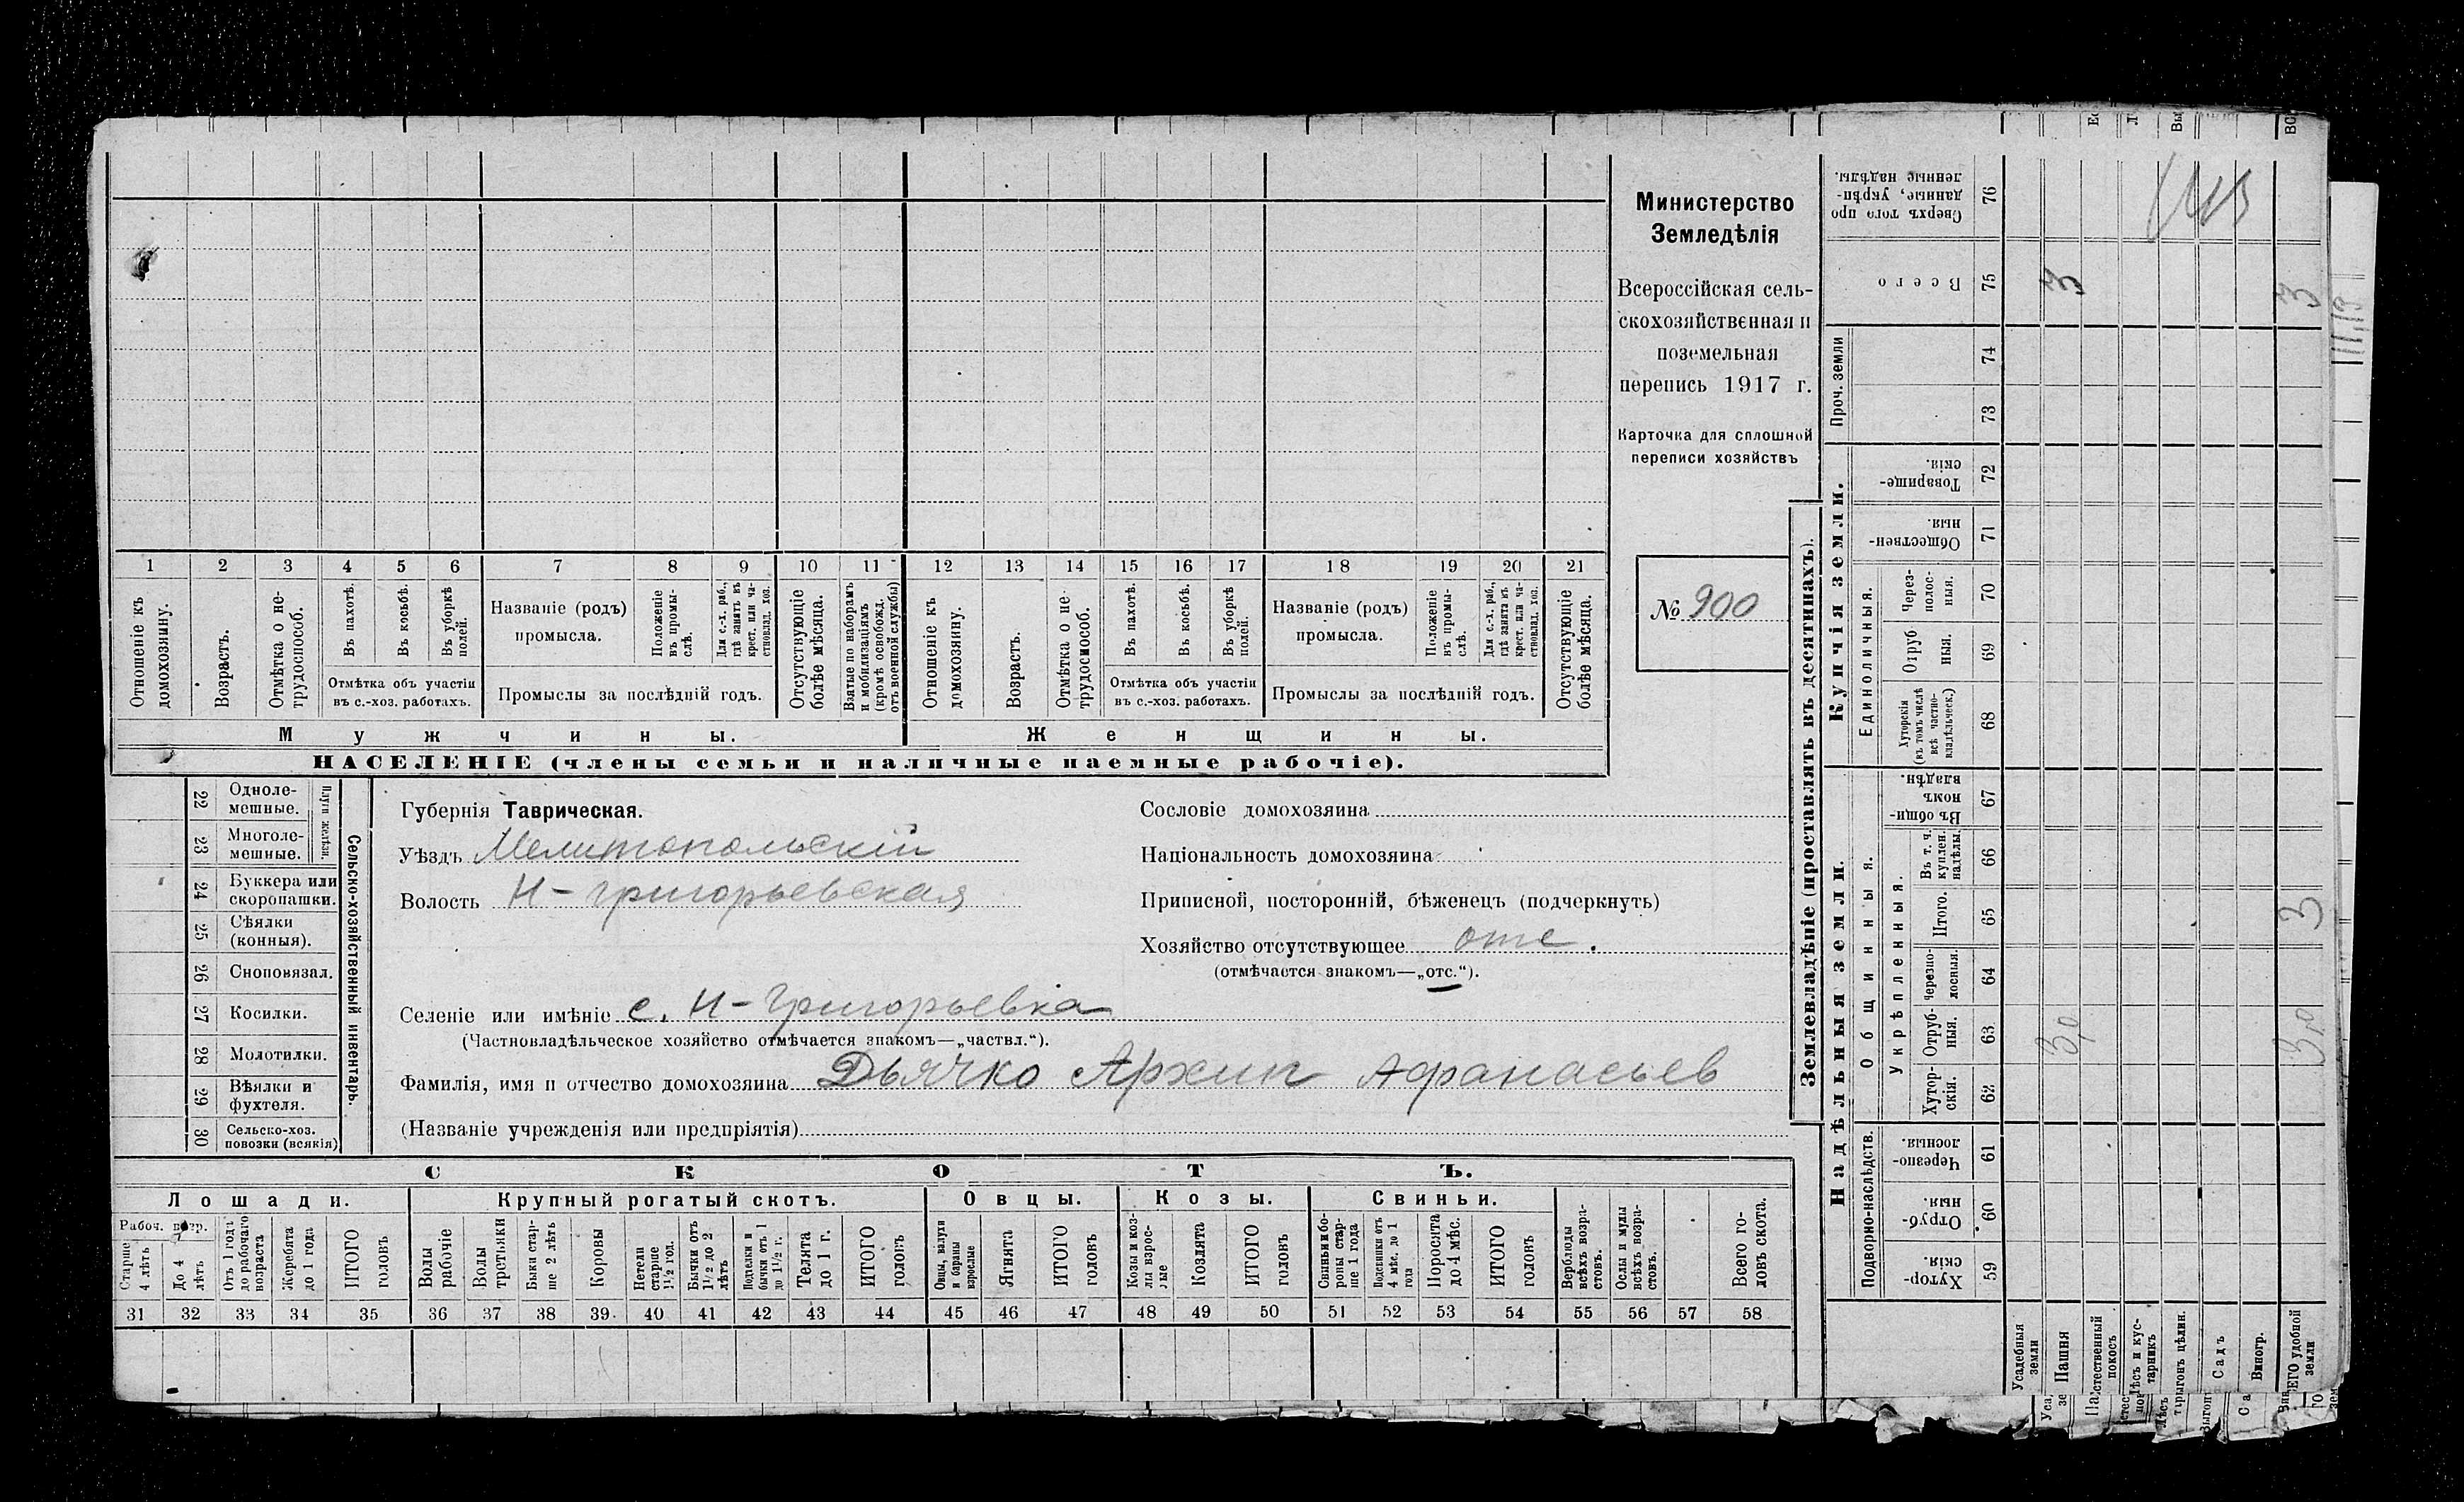 Министерство
Земледѣлія
Всероссійская сель-
скохозяйственная и
поземельная
перепись 1917 г.
Карточка для сплошной
переписи хозяйствъ
№ 900
1 2 3 4 5 6 7 8 9 10 11 12 13 14 15 16 17 18 19 20 21
Отношеніе къ домохозяину.
Возрастъ.
Отмѣтка о не-трудоспособ.
Въ пахотѣ.
Въ косьбѣ.
Въ уборкѣ полей.
Отмѣтка объ участіи
въ с.-хоз. работахъ.
Названіе (родъ)
промысла.
Положеніе въ промы-слѣ.
Для с.-х. раб., гдѣ занятъ въ крест. или ча-стновлад. хоз.
Промыслы за послѣдній годъ.
Отсутствующіе болѣе мѣсяца.
Взятые по наборамъ и мобилизаціямъ (кромѣ освобожд. отъ военной службы)
Отношеніе къ домохозяину.
Возрастъ.
Отмѣтка о не-трудоспособ.
Въ пахотѣ.
Въ косьбѣ.
Въ уборкѣ полей.
Отмѣтка объ участіи
въ с.-хоз. работахъ.
Названіе (родъ)
промысла.
Положеніе въ промы-слѣ.
Для с.-х. раб., гдѣ занята въ крест. или ча-стновлад. хоз.
Промыслы за послѣдній годъ.
Отсутствующіе болѣе мѣсяца.
Мужчины. Женщины.
НАСЕЛЕНІЕ (члены семьи и наличные наемные рабочіе).
Сельско-хозяйственный инвентарь.
Плуги желѣзн.
22 Одноле-
мешные.
23 Многоле-
мешные.
24 Буккера или
скоропашки.
25 Сѣялки
(конныя).
26 Сноповязал.
27 Косилки.
28 Молотилки.
29 Вѣялки и
фухтеля.
30 Сельско-хоз.
повозки (всякія)
Губернія Таврическая.
Уѣздъ Мелитопольскій
Волость Н-григорьевская
Сословіе домохозяина
Національность домохозяина
Приписной, посторонній, бѣженецъ (подчеркнуть)
Хозяйство отсутствующее отс.
(отмѣчается знакомъ—„отс.“).
Селеніе или имѣніе с. Н-Григорьевка
(Частновладѣльческое хозяйство отмѣчается знакомъ—„частвл.“).
Фамилія, имя и отчество домохозяина Дьячко Архип Афанасьев
(Названіе учрежденія или предпріятія)
СКОТЪ.
Лошади. Крупный рогатый скотъ. Овцы. Козы. Свиньи.
Рабоч. возр.
Старше 4 лѣтъ
До 4 лѣтъ
Отъ 1 года до рабочаго возраста
Жеребята до 1 года
ИТОГО головъ
Волы рабочіе
Волы третьяки
Быки стар-ше 2 лѣтъ
Коровы
Нетели старше 1½ год.
Бычки отъ 1½ до 2 лѣтъ
Подтелки и бычки отъ 1 до 1½ г.
Телята до 1 г.
ИТОГО головъ
Овцы, валухи и бараны взрослые
Ягнята
ИТОГО головъ
Козы и коз-лы взрос-лые
Козлята
ИТОГО головъ
Свиньи и бо-ровы стар-ше 1 года
Подсвинки отъ 4 мѣс. до 1 года
Поросята до 4 мѣс.
ИТОГО головъ
Верблюды всѣхъ возра-стовъ.
Ослы и мулы всѣхъ возра-стовъ.
Всего го-ловъ скота.
31 32 33 34 35 36 37 38 39 40 41 42 43 44 45 46 47 48 49 50 51 52 53 54 55 56 57 58
Землевладѣніе (проставлять въ десятинахъ).
Надѣльныя земли.
Купчія земли.
Проч. земли
Подворно-наслѣдств.
Общинныя.
Укрѣпленныя.
Единоличныя.
Сверхъ того про-данные, укрѣп-ленные надѣлы. 76
Всего 75 3 3
74
73
Товарище-скія. 72
Обществен-ныя. 71
Через-полос-ныя. 70
Отруб-ныя. 69
Хуторскія (въ томъ числѣ всѣ частно-владѣльческ.) 68
Въ общи-номъ владѣн. 67
Въ т. ч. куплен. надѣлы. 66
Итого. 65 3
Черезпо-лосныя. 64
Отруб-ныя. 63 3,0 3,0
Хутор-скія. 62
Черезпо-лосныя. 61
Отруб-ныя. 60
Хутор-скія. 59
Усадебныя земли
Пашня
Естественный покосъ
Лѣсъ и кус-тарникъ
Садъ
Виногр.
ВСЕГО удобной земли